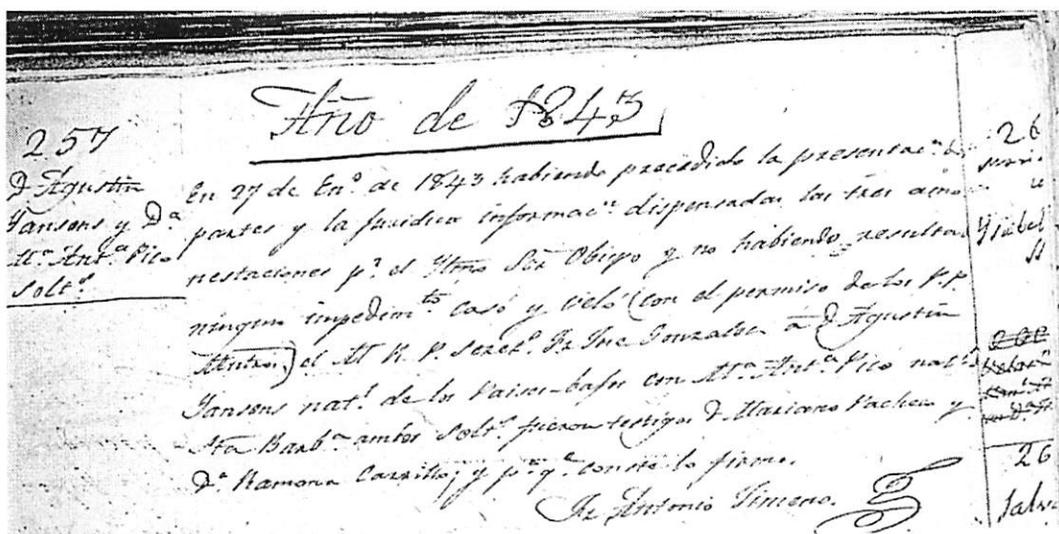 Año de 1843
257
D. Agustin
Jansens y Dª
Mª. Antª. Pico
Soltˢ.
En 27 de Enº. de 1843 habiendo precedido la presentacⁿ. de
partes y la juridica informacⁿ. dispensadas las tres amo-
nestaciones pʳ. el Ytmo Sor Obispo y no habiendo resultado
ningun impedimᵗº. casó y veló (con el permiso de los P.P.
) el M. R. P. Fr. Jose Gonzalez á D. Agustin
Jansens natˡ. de los Paises-bajos con Mª. Antª. Pico natˡ.
Sta Barbª. ambos soltˢ. fueron testigos D. Mariano Pacheco y
Dª. Ramona Carrillo; y pª. qᵉ. conste lo firmo.
Fr. Antonio Jimeno.
26
Ysabel
26
Salv